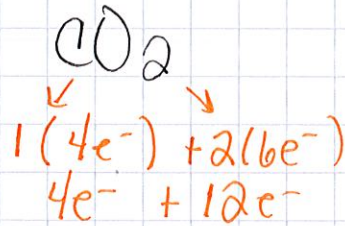 CO₂
1(4e⁻) + 2(6e⁻)
4e⁻ + 12e⁻